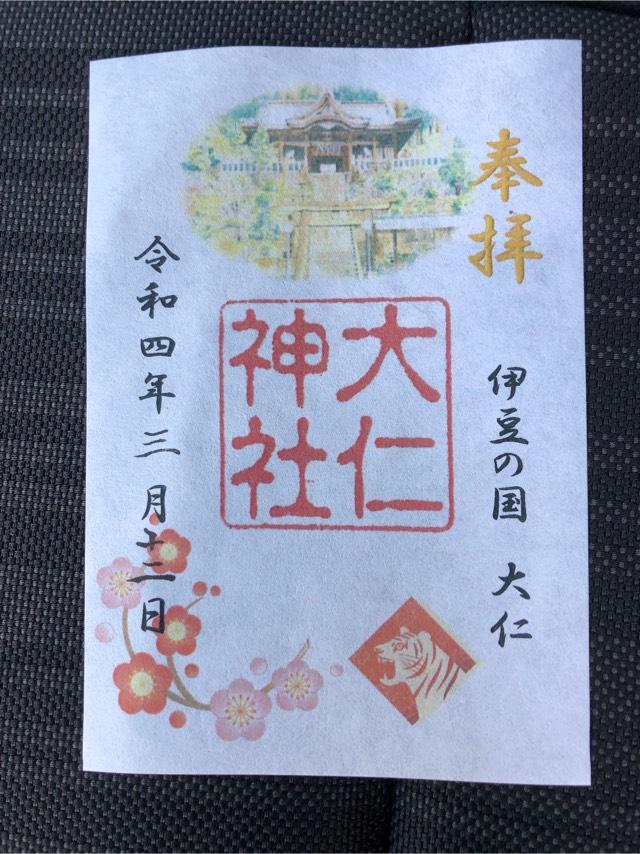 奉拝
伊豆の国 大仁
大仁
神社
令和四年三月十二日